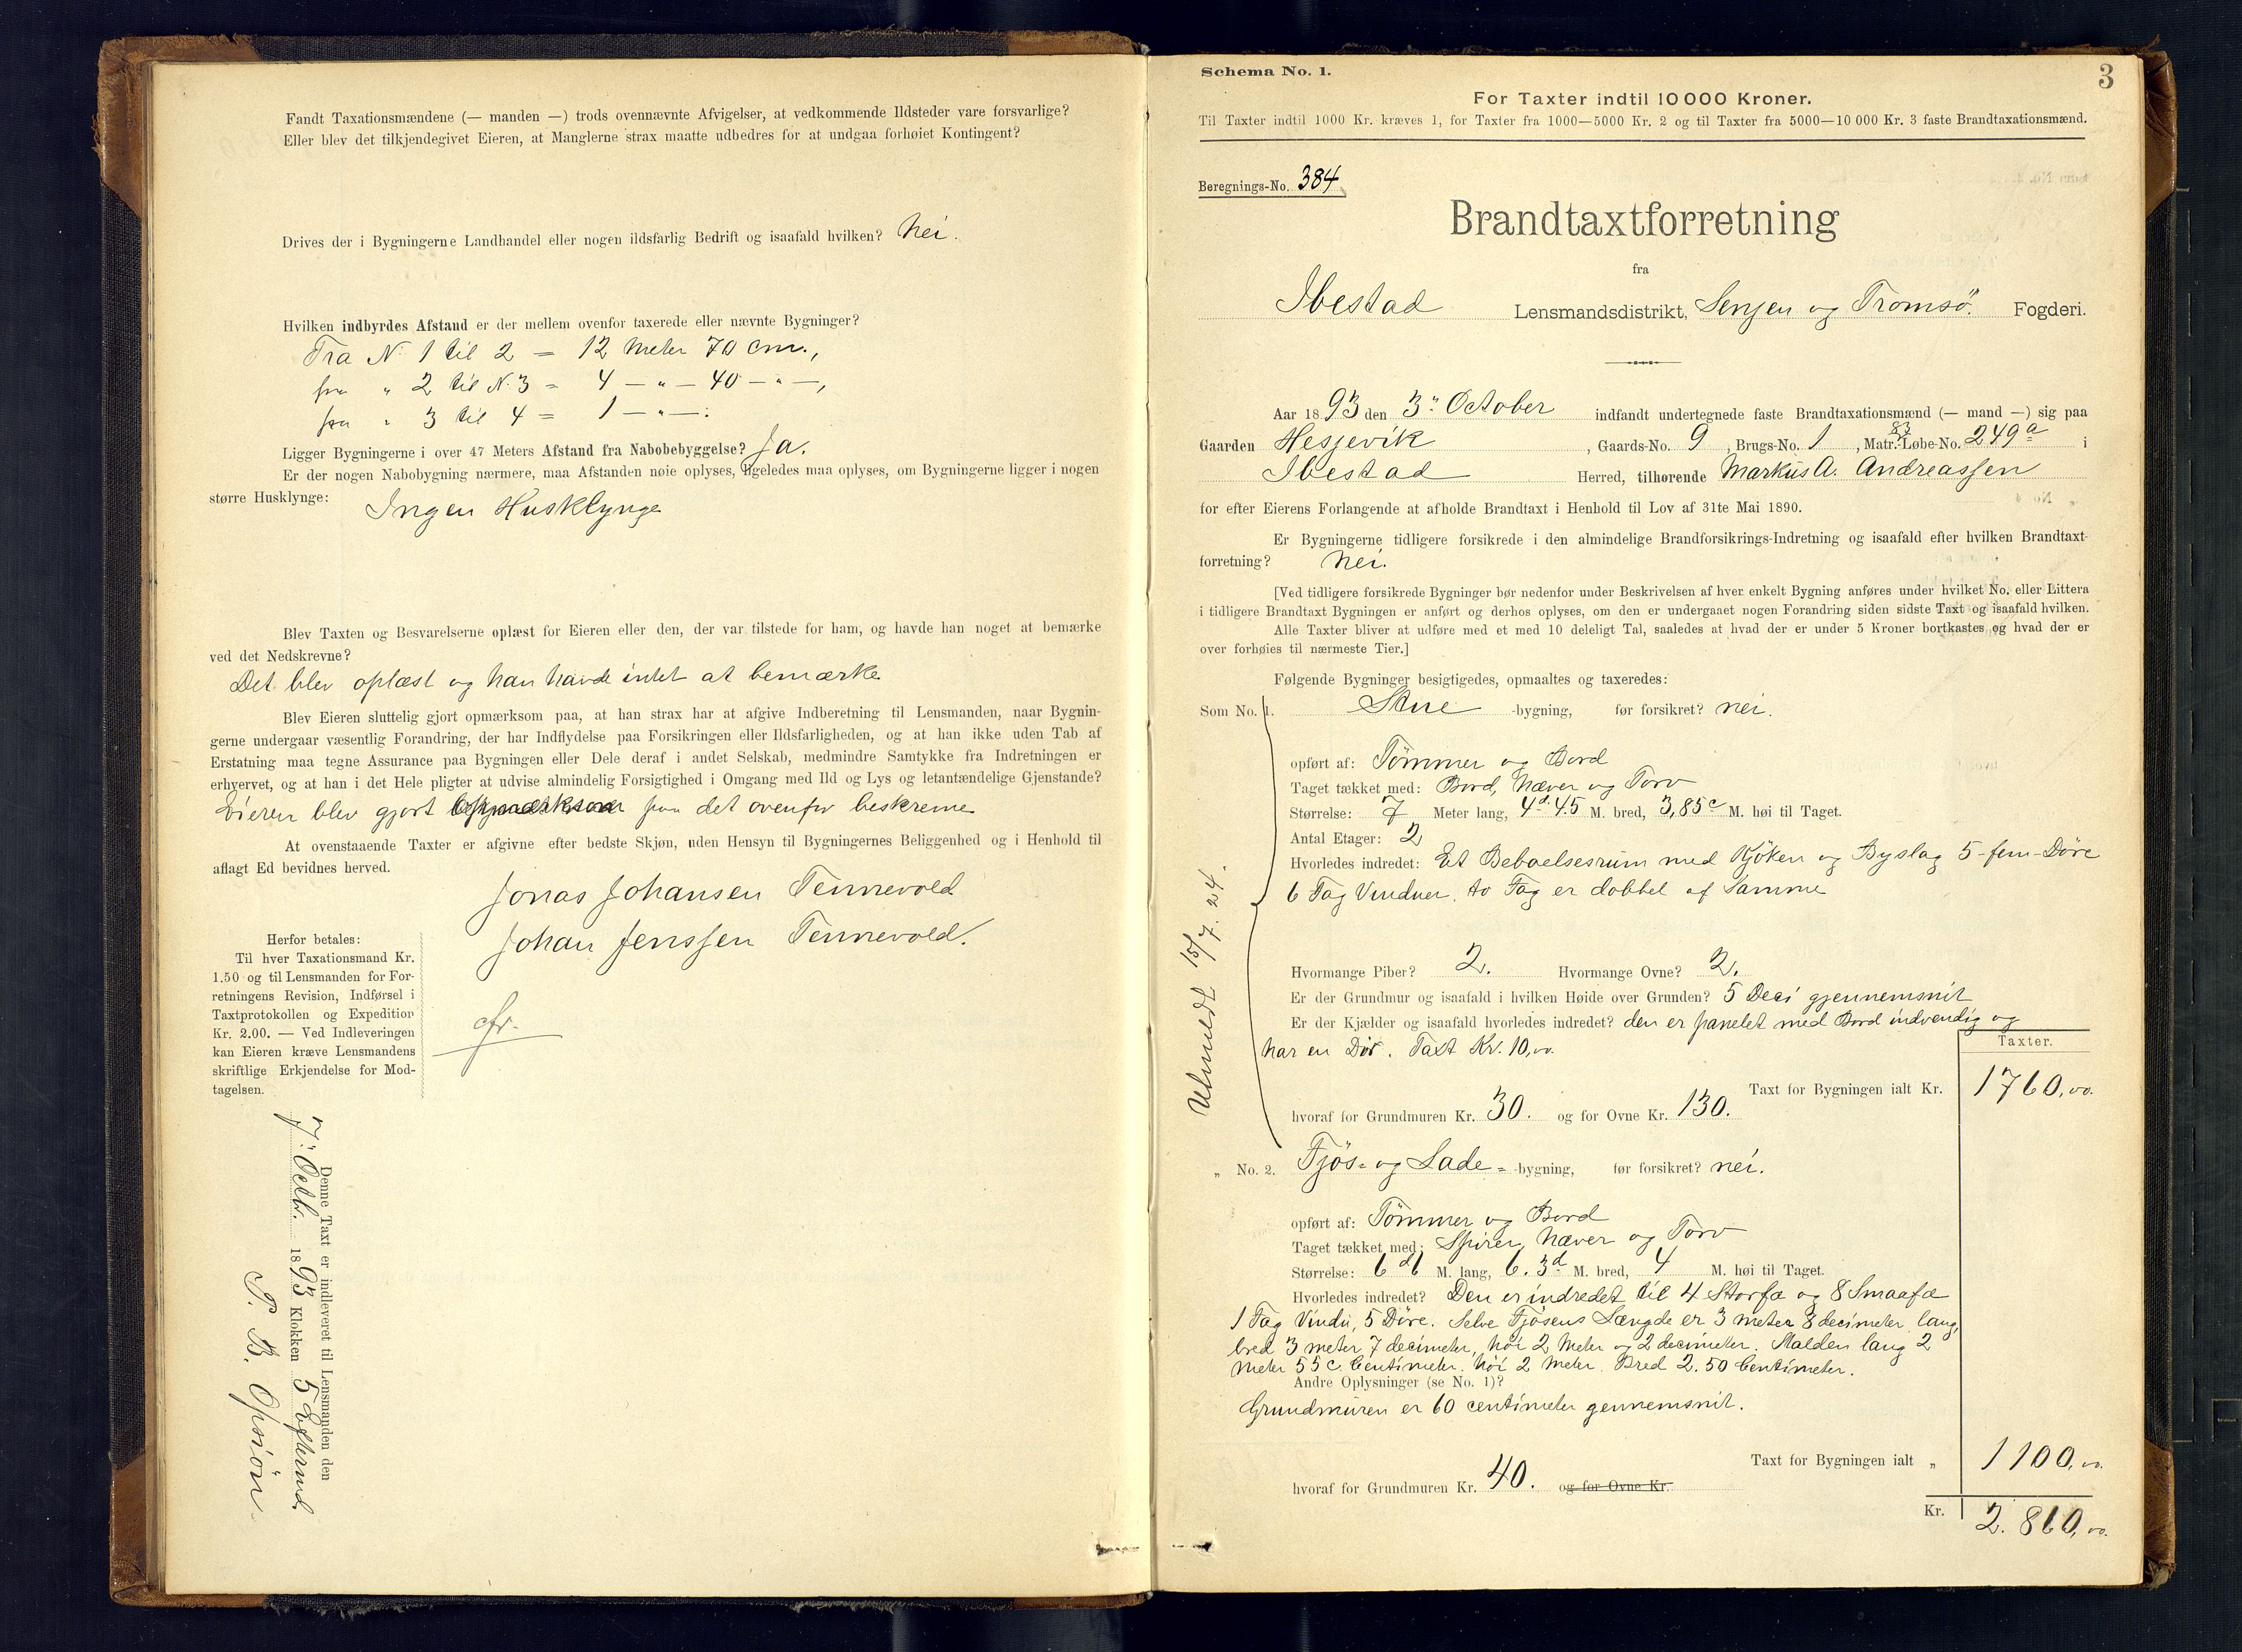 Fandt Taxationsmændene (— manden —) trods ovennævnte Afvigelser, at vedkommende Ildsteder vare forsvarlige?
Eller blev det tilkjendegivet Eieren, at Manglerne strax maatte udbedres for at undgaa forhøiet Kontingent?
Drives der i Bygningerne Landhandel eller nogen ildsfarlig Bedrift og isaafald hvilken? Nei.
Hvilken indbyrdes Afstand er der mellem ovenfor taxerede eller nævnte Bygninger?
Fra N. 1 til 2 = 12 Meter 70 cm.,
fra " 2 til N. 3 = 4 — " — 40 — " —,
fra " 3 til 4 = 1 — " — :
Ligger Bygningerne i over 47 Meters Afstand fra Nabobebyggelse? Ja.
Er der nogen Nabobygning nærmere, maa Afstanden nøie oplyses, ligeledes maa oplyses, om Bygningerne ligger i nogen
større Husklynge: Ingen Husklynge
Blev Taxten og Besvarelserne oplæst for Eieren eller den, der var tilstede for ham, og havde han noget at bemærke
ved det Nedskrevne?
Det blev oplæst og han havde intet at bemærke
Blev Eieren sluttelig gjort opmærksom paa, at han strax har at afgive Indberetning til Lensmanden, naar Bygnin-
gerne undergaar væsentlig Forandring, der har Indflydelse paa Forsikringen eller Ildsfarligheden, og at han ikke uden Tab af
Erstatning maa tegne Assurance paa Bygningen eller Dele deraf i andet Selskab, medmindre Samtykke fra Indretningen er
erhvervet, og at han i det Hele pligter at udvise almindelig Forsigtighed i Omgang med Ild og Lys og letantændelige Gjenstande?
Eieren blev gjort opmærksom paa det ovenfor beskrevne
At ovenstaaende Taxter er afgivne efter bedste Skjøn, uden Hensyn til Bygningernes Beliggenhed og i Henhold til
aflagt Ed bevidnes herved.
Jonas Johansen Tennevold
Johan Jenssen Tennevold.
Herfor betales:
Til hver Taxationsmand Kr.
1.50 og til Lensmanden for For-
retningens Revision, Indførsel i
Taxtprotokollen og Expedition
Kr. 2.00. — Ved Indleveringen
kan Eieren kræve Lensmandens
skriftlige Erkjendelse for Mod-
tagelsen.
Denne Taxt er indleveret til Lensmanden den
7" Octb. 1893 Klokken 5 Eftermd.
P. B. Opsiön
Schema No. 1.
3
For Taxter indtil 10 000 Kroner.
Til Taxter indtil 1000 Kr. kræves 1, for Taxter fra 1000—5000 Kr. 2 og til Taxter fra 5000—10 000 Kr. 3 faste Brandtaxationsmænd.
Beregnings-No. 384
Brandtaxtforretning
fra
Ibestad Lensmandsdistrikt, Senjen og Tromsö. Fogderi.
Aar 1893 den 3" October indfandt undertegnede faste Brandtaxationsmænd (— mand —) sig paa
Gaarden Hesjevik, Gaards-No. 9, Brugs-No. 1, Matr.-Løbe-No. 83 249a i
Ibestad Herred, tilhørende Markus A. Andreassen
for efter Eierens Forlangende at afholde Brandtaxt i Henhold til Lov af 31te Mai 1890.
Er Bygningerne tidligere forsikrede i den almindelige Brandforsikrings-Indretning og isaafald efter hvilken Brandtaxt-
forretning? Nei.
[Ved tidligere forsikrede Bygninger bør nedenfor under Beskrivelsen af hver enkelt Bygning anføres under hvilket No. eller Littera
i tidligere Brandtaxt Bygningen er anført og derhos oplyses, om den er undergaaet nogen Forandring siden sidste Taxt og isaafald hvilken.
Alle Taxter bliver at udføre med et med 10 deleligt Tal, saaledes at hvad der er under 5 Kroner bortkastes og hvad der er
over forhøies til nærmeste Tier.]
Følgende Bygninger besigtigedes, opmaaltes og taxeredes:
Som No. 1. Stue -bygning, før forsikret? nei.
opført af: Tömmer og Bord
Taget tækket med: Bord, Næver og Torv
Størrelse: 7 Meter lang, 4d. 45 M. bred, 3,85c M. høi til Taget.
Antal Etager: 2
Hvorledes indredet: Et Beboelsesrum med Kjöken og Byslag 5-fem-Döre
6 Fag Vinduer, to Fag er dobbel af Samme
Hvormange Piber? 2. Hvormange Ovne? 2.
Er der Grundmur og isaafald i hvilken Høide over Grunden? 5 Deci gjennemsnit
Er der Kjælder og isaafald hvorledes indredet? den er panelet med Bord indvendig og
har en Dör. Taxt Kr. 10,00.
Taxter.
Taxt for Bygningen ialt Kr. 1760,00.
hvoraf for Grundmuren Kr. 30. og for Ovne Kr. 130.
Udmeldt 15/7. 24.
" No. 2. Fjös- og Lade- -bygning, før forsikret? nei.
opført af: Tömmer og Bord
Taget tækket med: Spirer, Næver og Torv
Størrelse: 6 d6 M. lang, 6. 3d M. bred, 4 M. høi til Taget.
Hvorledes indredet? Den er indredet til 4 Storfæ og 8 Smaafæ
1 Fag Vindu, 5 Döre. Selve Fjösens Længde er 3 meter 8 decimeter lang,
bred 3 meter 7 decimeter, höi 2 Meter og 2 decimeter. Stalden lang 2
Meter 55 c. Centimeter. höi 2 Meter. Bred 2.50 Centimeter.
Andre Oplysninger (se No. 1)?
Grundmuren er 60 centimeter gennemsnit.
Taxt for Bygningen ialt " 1100,00.
hvoraf for Grundmuren Kr. 40. og for Ovne Kr.
Kr. 2.860,00.